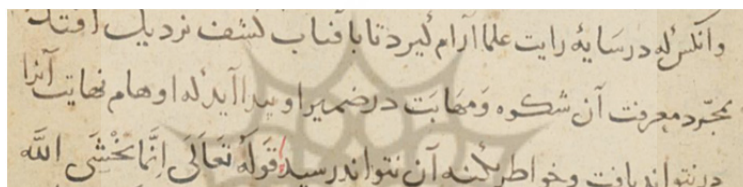 وانکس که در سایۀ رایت علما آرام گیرد تا بافتاب کشف نزدیک افتد
بمجرّد معرفت آن شکوه وَمهابَت در ضمیر او پیدا آید که اوهام نهایت آنرا
در نتواند یافت و خواطر بکنه آن نتواند رسید قَولُهُ تَعَالَی اِنَّمَا یَخْشَی اللّه